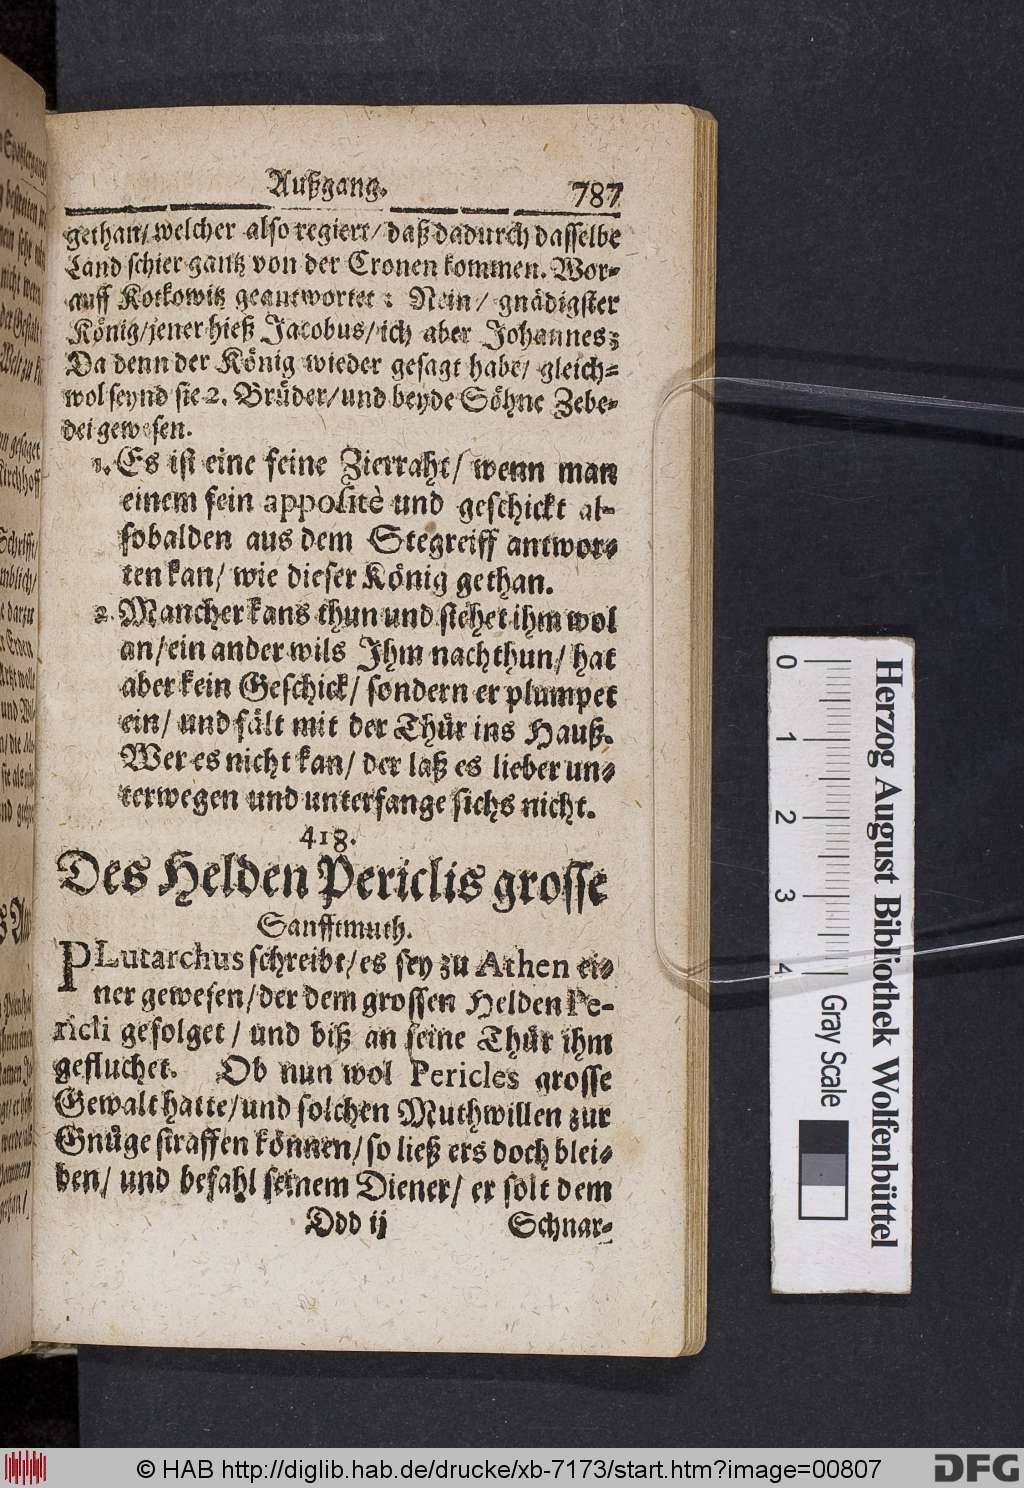 Außgang. 787
gethan/ welcher also regiert/ daß dadurch dasselbe
Land schier gantz von der Cronen kommen. Wor-
auff Kotkowitz geantwortet: Nein/ gnädigster
König/ jener hieß Jacobus/ ich aber Johannes;
Da denn der König wieder gesagt habe/ gleich-
wol seynd sie 2. Brüder/ und beyde Söhne Zebe-
dei gewesen.
1. Es ist eine feine Zierraht/ wenn man
einem fein appositè und geschickt al-
sobalden aus dem Stegreiff antwor-
ten kan/ wie dieser König gethan.
2. Mancher kans thun und stehet ihm wol
an/ ein ander wils Ihm nachthun/ hat
aber kein Geschick/ sondern er plumpet
ein/ und fält mit der Thür ins Hauß.
Wer es nicht kan/ der laß es lieber un-
terwegen und unterfange sichs nicht.
418.
Des Helden Periclis grosse
Sanfftmuth.
PLutarchus schreibt/ es sey zu Athen ei-
ner gewesen/ der dem grossen Helden Pe-
ricli gefolget/ und biß an seine Thür ihm
gefluchet. Ob nun wol Pericles grosse
Gewalt hatte/ und solchen Muthwillen zur
Gnüge straffen können/ so ließ ers doch blei-
ben/ und befahl seinem Diener/ er solt dem
Ddd ij Schnar-
0 1 2 3 4 Gray Scale
Herzog August Bibliothek Wolfenbüttel
© HAB http://diglib.hab.de/drucke/xb-7173/start.htm?image=00807
DFG